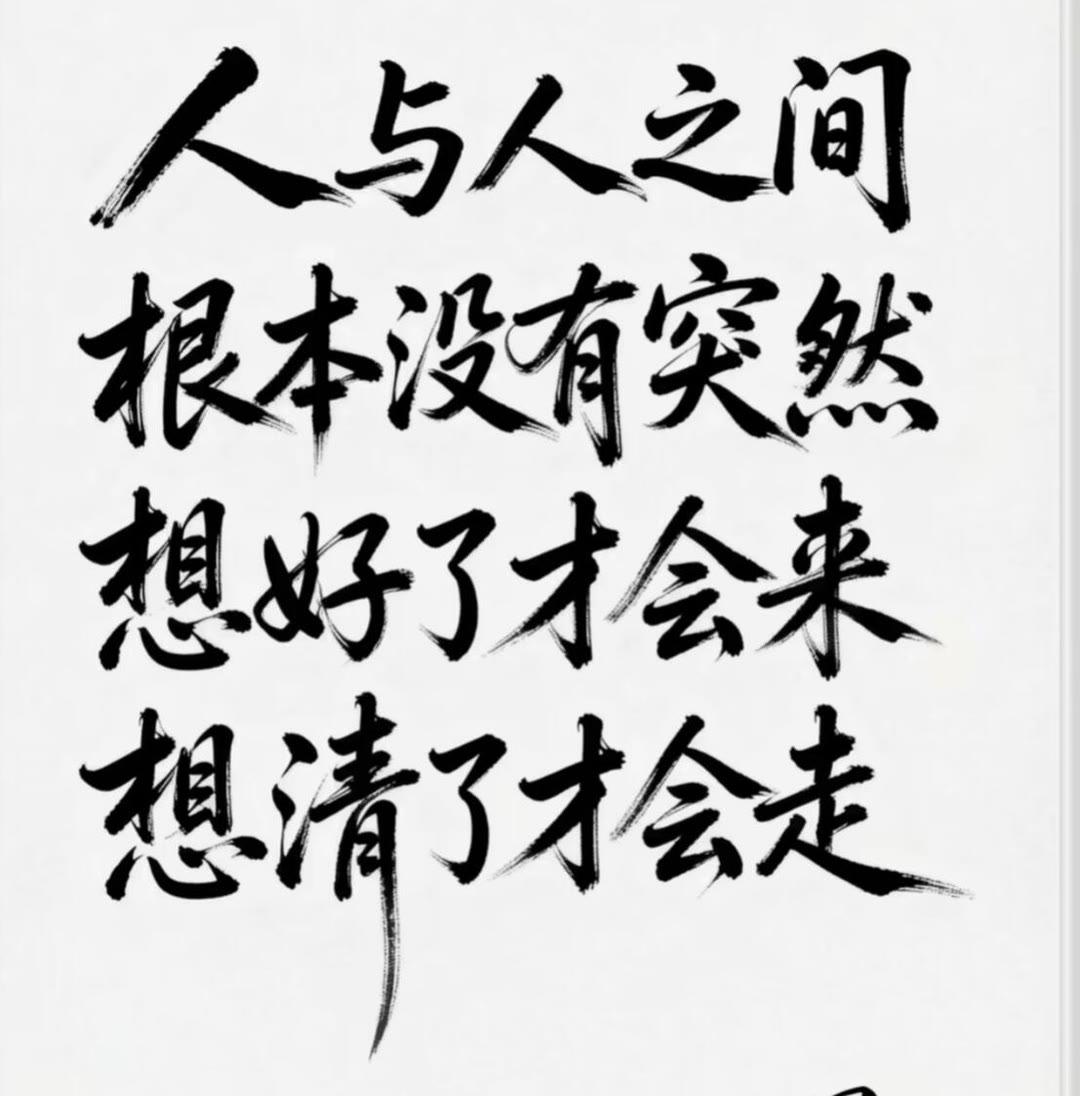 人与人之间
根本没有突然
想好了才会来
想清了才会走